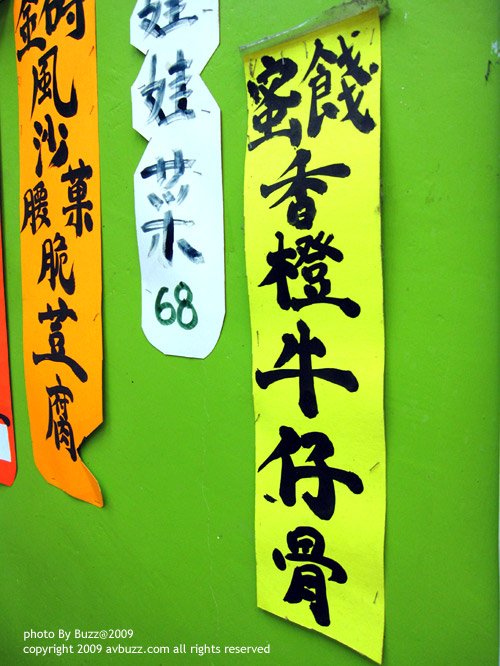 風沙腰菓脆荳腐
娃娃菜
68
蜜餞香橙牛仔骨
photo By Buzz@2009
copyright 2009 avbuzz.com all rights reserved